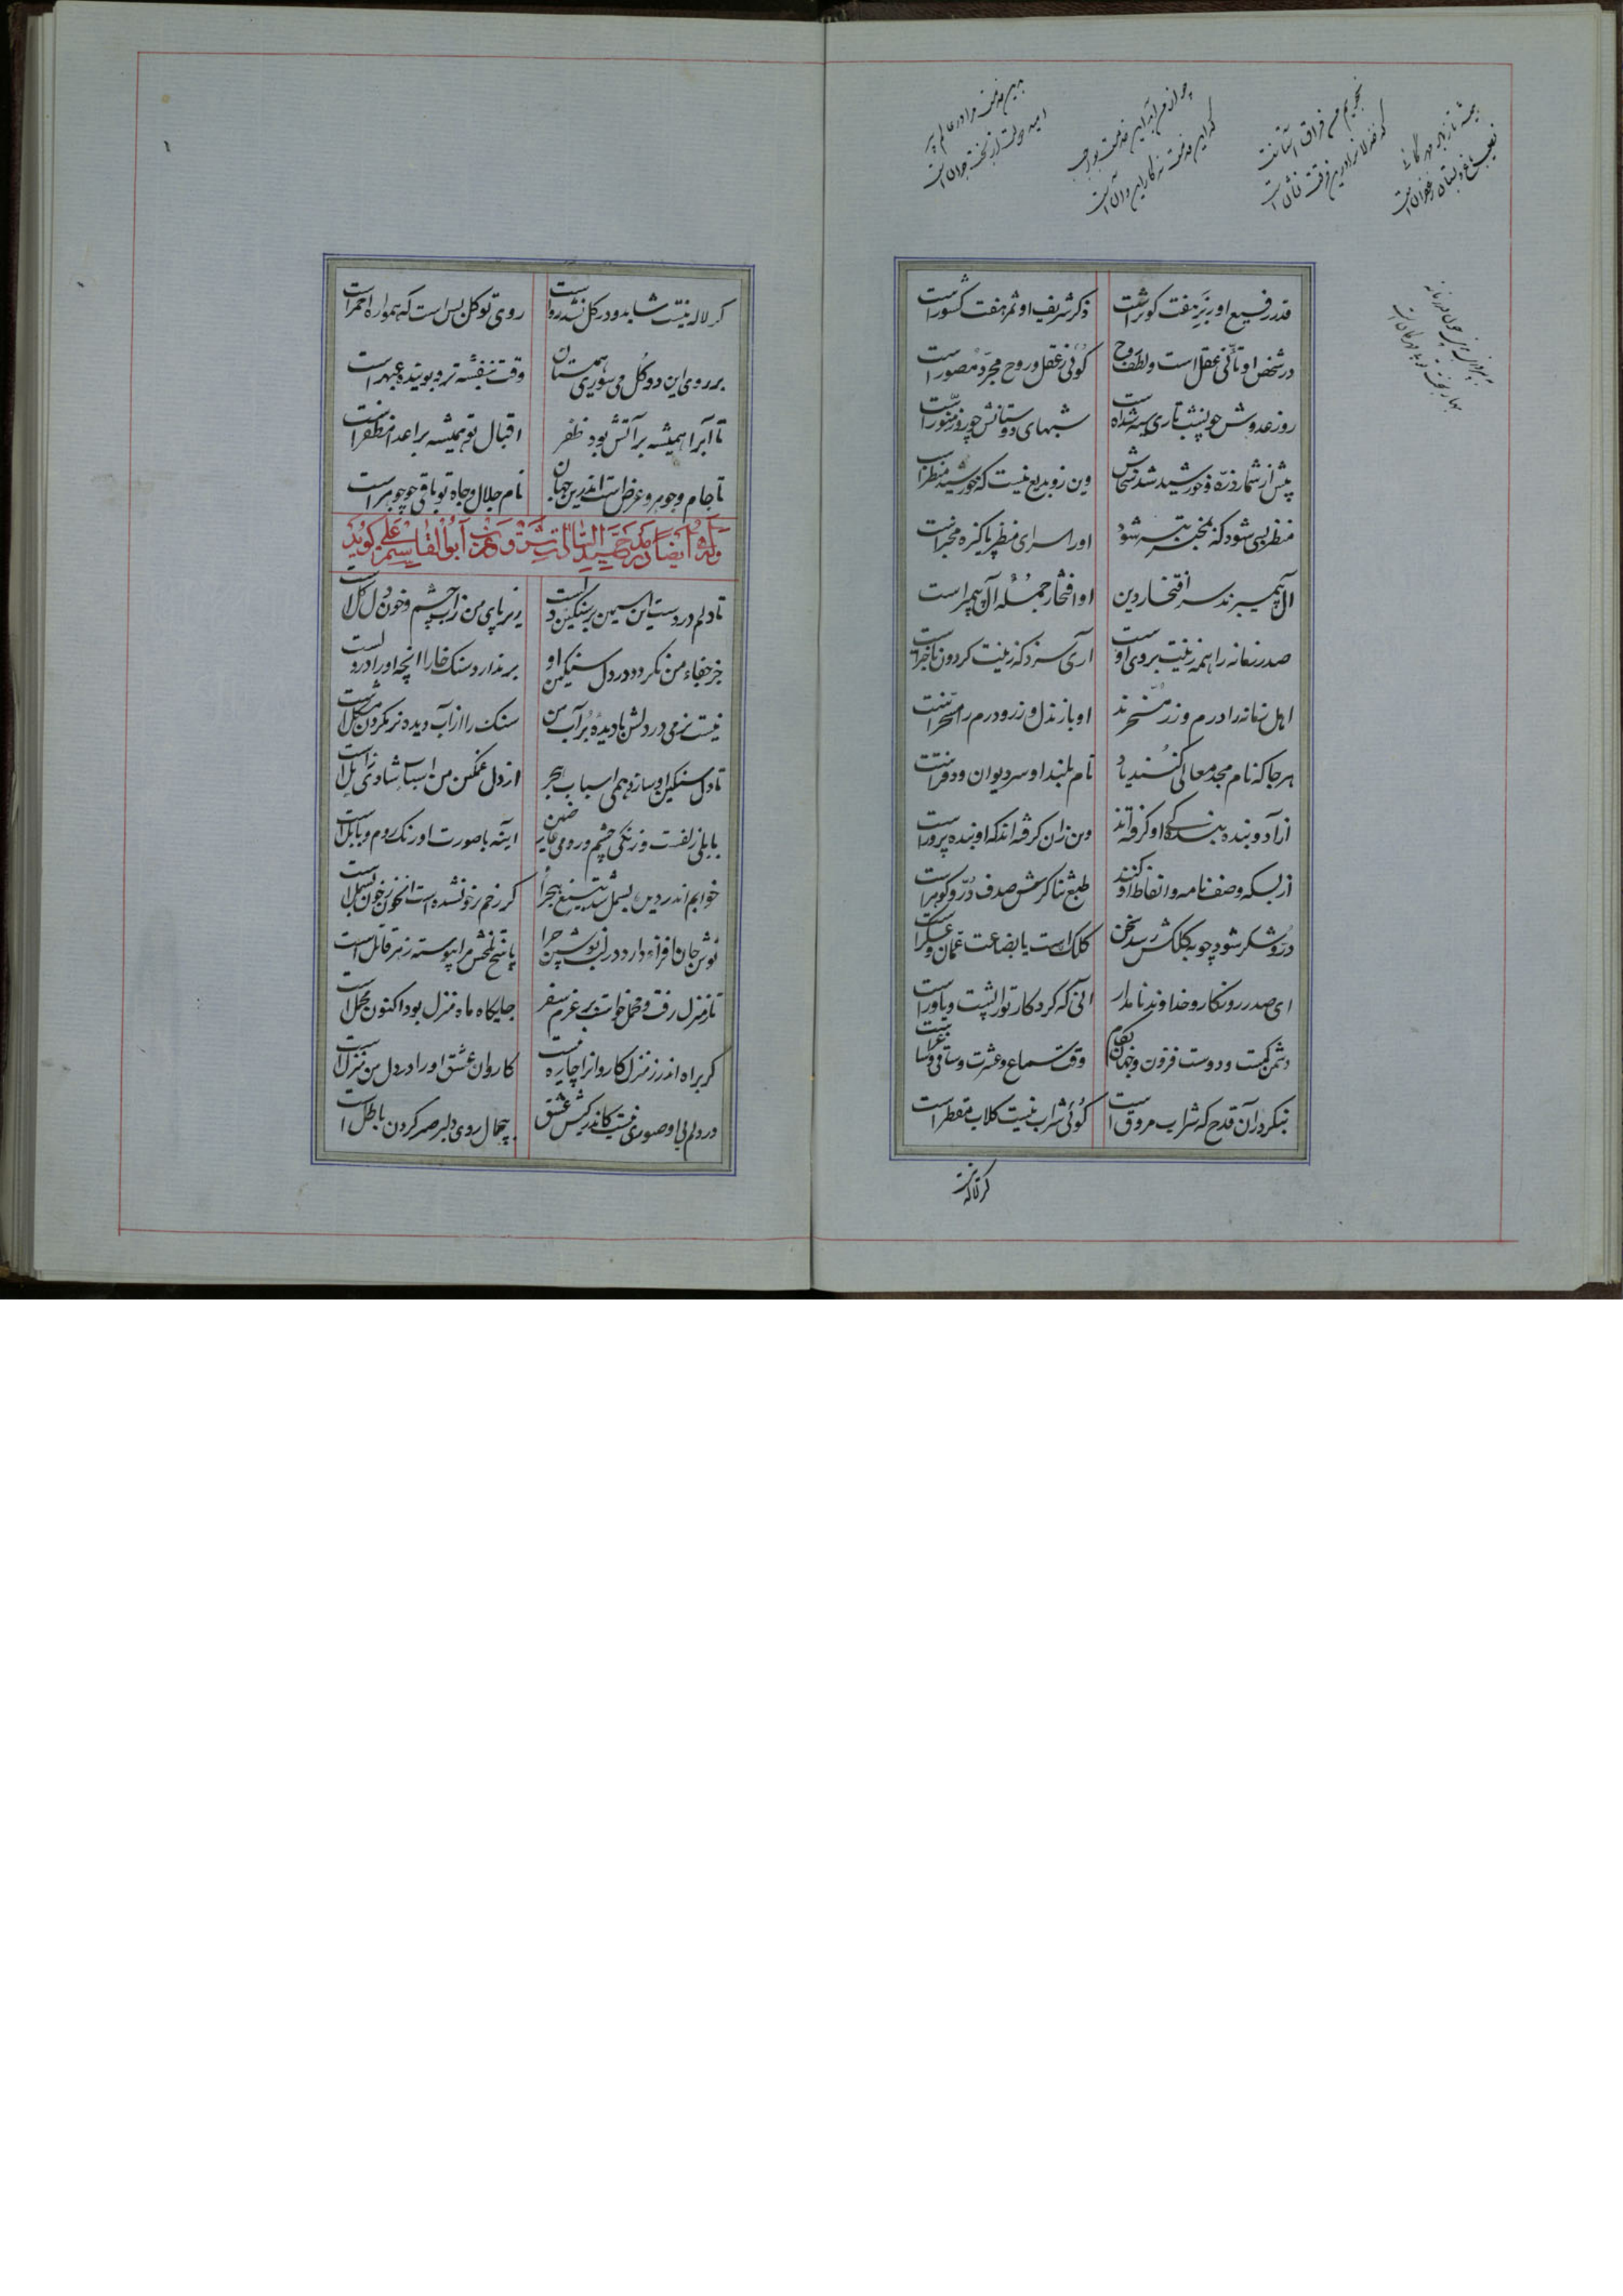 همیشه تا زهر مهرگانی
نصیب باغ و بستان زعفران است
نجویم من فراق آستانت
چو از من آید این خدمت بواجب
که این خدمت نه کار این و آن است
بدین خدمت مرا در عالم پیر
امید دولت از بخت جوان است
قدر رفیع او زبر هفت کوبر است ذکر شریف او ثمر هفت کشور است
در شخص او تأنی عقل است و لطف روح گوئی ز عقل و روح مجرد مصور است
روز عدوش چو شب تاری سیه شده است شبهای دوستانش چو روز منور است
بیش از شمار ذره و خورشید شد سخاش وین زو بدیع نیست که خورشید منظر است
منظر بسی شود که بمخبر بتر شود او را سرای منظر پاکیزه مخبر است
آل پیمبرند سر افتخار دین او افتخار جمله آل پیمبر است
صدر زمانه را همه زینت بروی اوست آری سزد که زینت گردون باختر است
اهل زمانه را درم و زر مسخرند او باز بذل و زر و درم را مسخر است
هر جا که نام مجد معالی کنند یاد نام بلند او سر دیوان و دفتر است
آزاد و بنده بندگی او گرفته‌اند وین زان گرفته‌اند که او بنده پرور است
از بسکه وصف نامه و انفاط او کنند طبع ثناگرش صدف در و گوهر است
در و شکر شود چو بکلکش رسد سخن کلک است یا بضاعت عمان و عسکر است
ای صدر روزگار و خداوند نامدار آنی که کردگار ترا پشت و یاور است
دشمن کمست و دوست فزون و جهان بکام وقت سماع و عشرت و ساقی و ساغر است
بنگر در آن قدح که شراب مروق است گوئی شراب نیست گلاب مقطر است
گر لاله نیست
گر لاله نیست شاید و در گل نشد رواست روی تو گل بس است که همواره احمر است
بر روی این دو گل می سوری همی ستان وقت بنفشه تر و بوینده عبهر است
تا آب را همیشه بر آتش بود ظفر اقبال تو همیشه بر اعدا مظفر است
تا جام و جوهر و عرض است اندرین جهان نام جلال و جاه تو باقی چو جوهر است
وله ایضاً در مدح سید السادات شرق و غرب ابوالقاسم علی گوید
تا دلم در دست این سیمین بر سنگین دل است زیر پای من ز آب چشم و خون دل گل است
جز جفاء من نگردد در دل سنگین او بر ندارد سنگ خارا آنچه او را در دل است
نیست نرمی در دلش با دیده پر آب من سنگ را از آب دیده نرم کردن مشکل است
تا دل سنگین او سازد همی اسباب هجر از دل غمگین من اسباب شادی زایل است
بابلی زلفت و زنگی چشم و رومی عارضین آینه با صورت او رنگ روم و بابل است
خوابم اندر دیده بسمل شد بتیغ هجر او گر ز خم زخونشده است آن خون ز خون بسمل است
نوش جان افزاء دارد در لب نوشین چرا پاسخ تلخش مرا پیوسته زهر قاتل است
تا ز منزل رفت و محمل خواست بر عزم سفر جایگاه ماه منزل بود اکنون محمل است
گر براه اندر ز منزل کاروانرا چاره نیست کاروان عشق او را در دل من منزل است
در دلم بی او صبوری نیست کاندر کیش عشق بی جمال روی دلبر صبر کردن باطل است